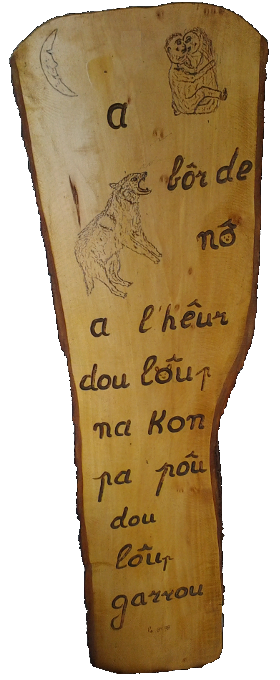 a
bôr de
nô
a l'hêur
dou lôup
na kon
pa pôu
dou
lôup
garrou